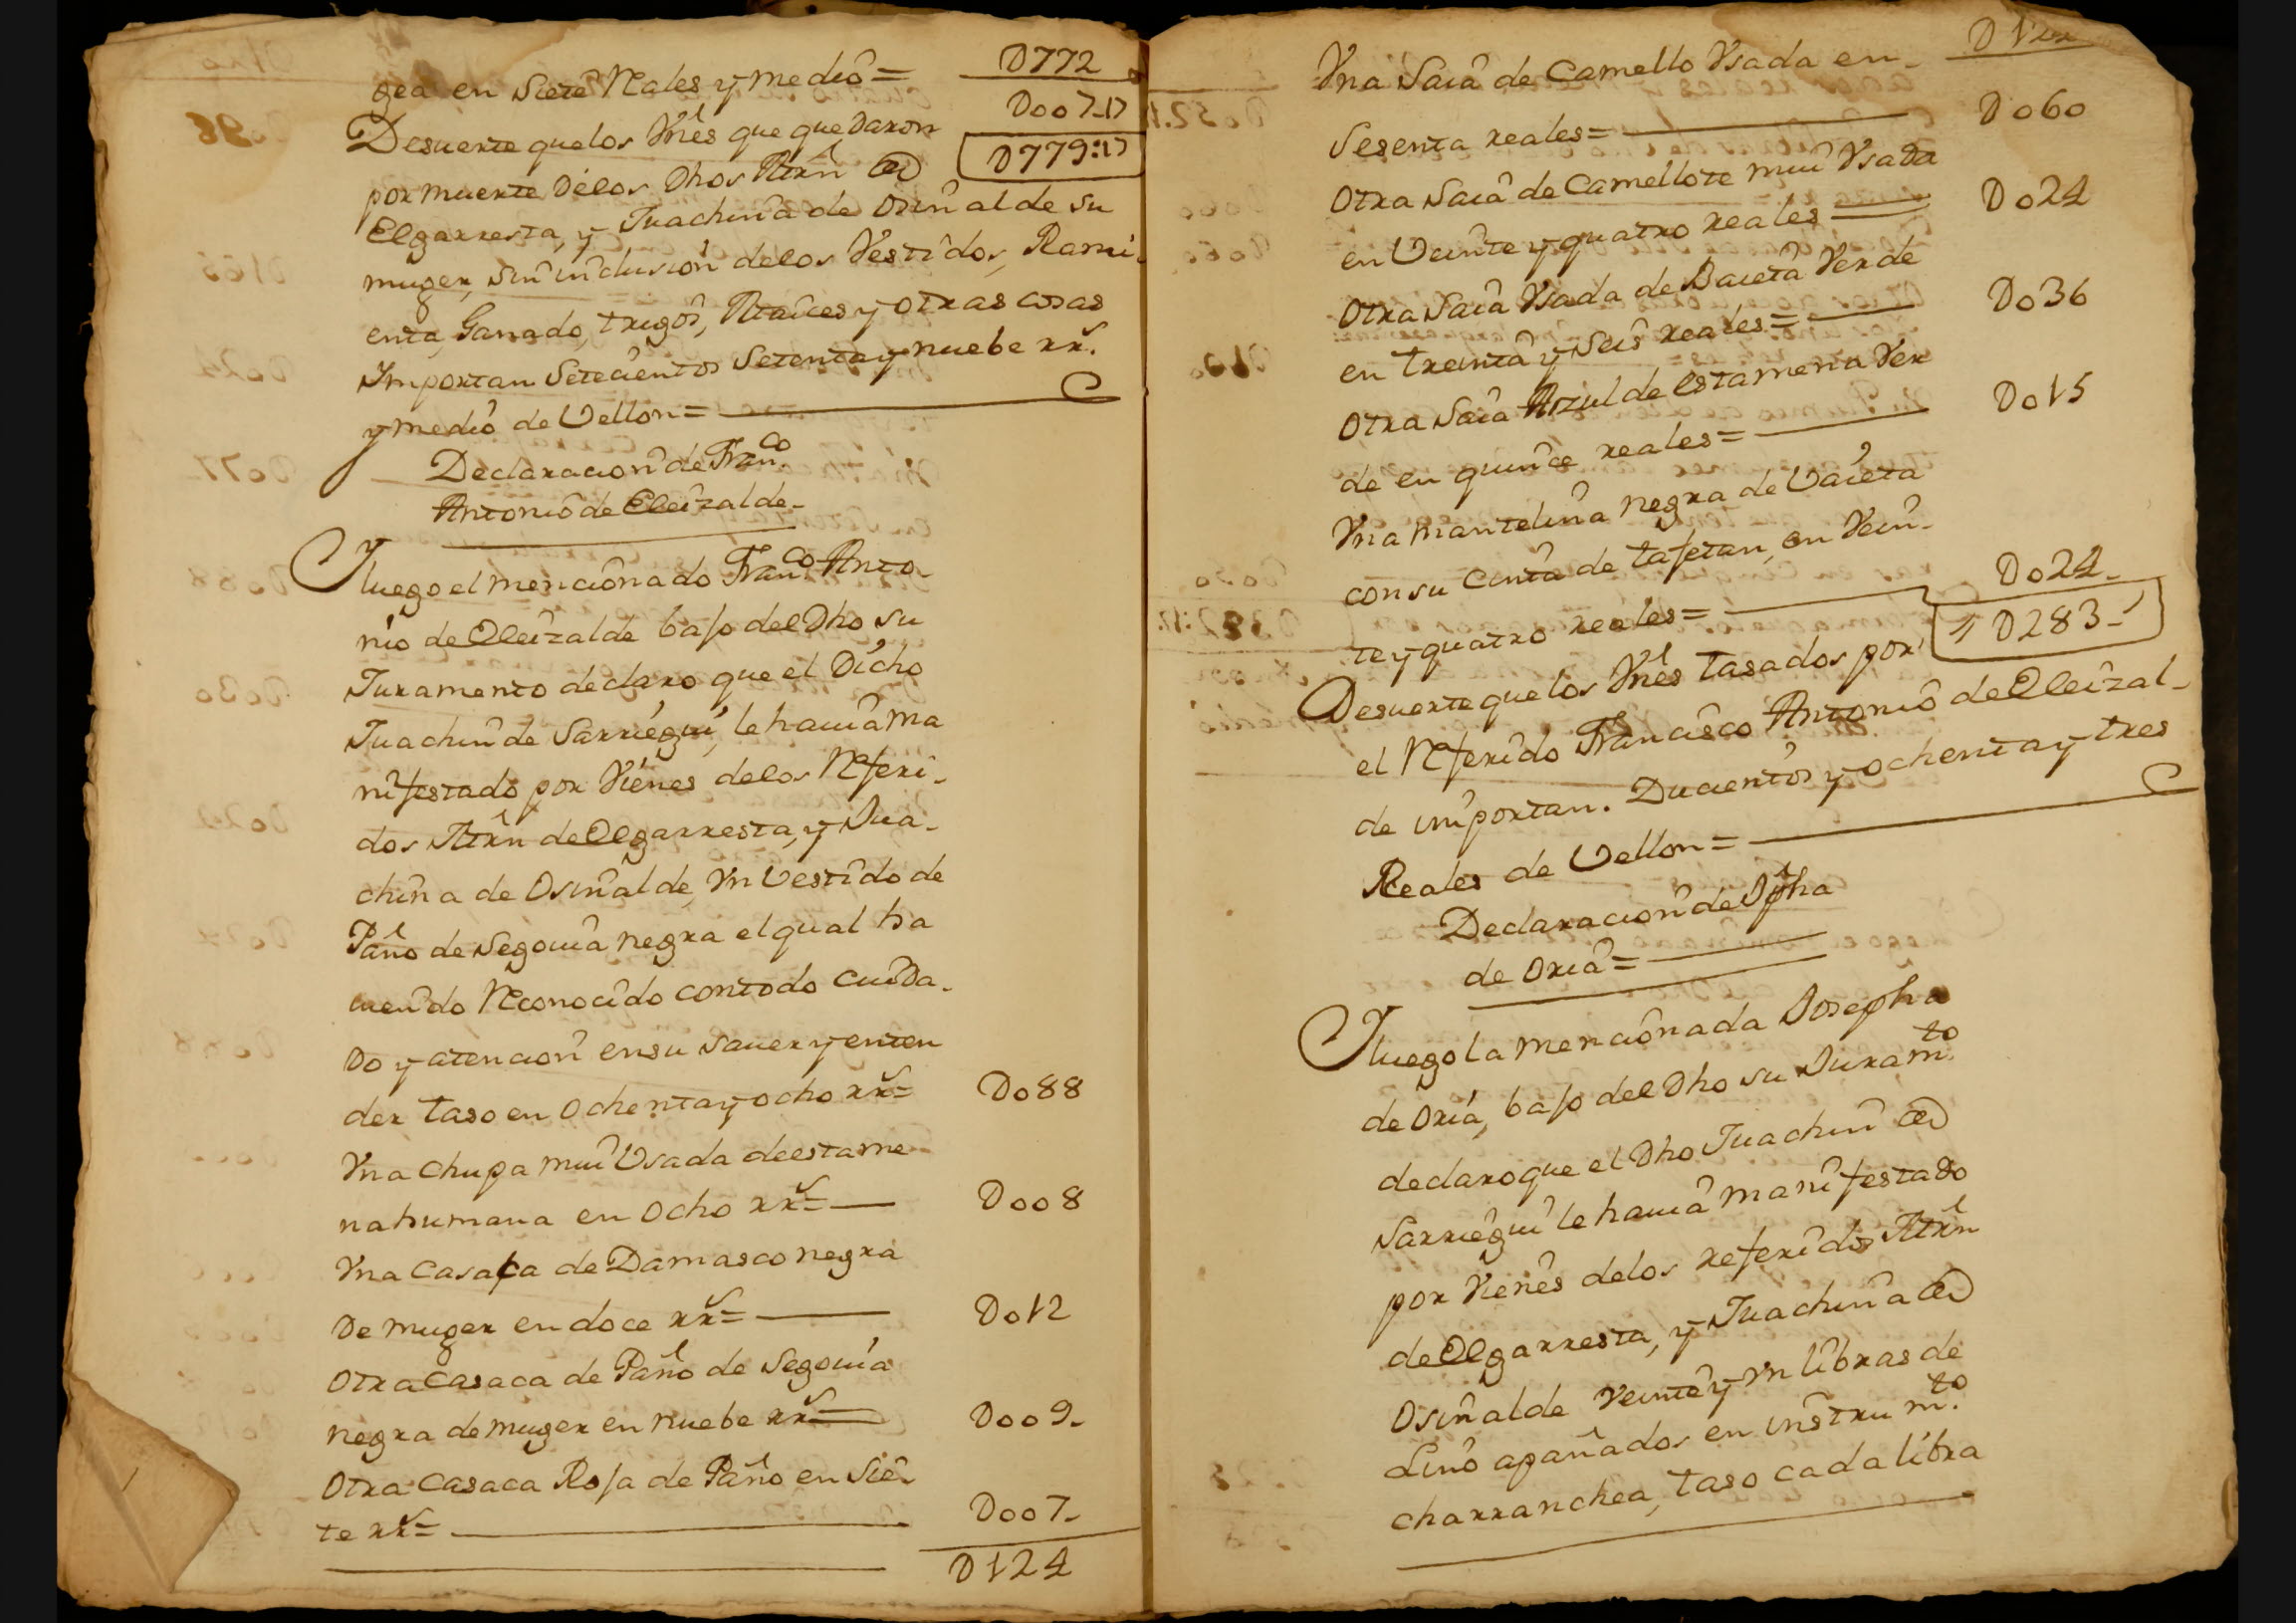 gea en Siete Reales y medio= D772
D007-17
Desuerte que los Vnes que quedaron
por muerte Delos Dhos Mrn de D779:17
Elgarresta, y Juachina de Osinalde su
muger, sin inclusion delos Vestidos, Rami
enta, Ganado, trigos, Raices y otras cosas
Importan Setecientos Setenta y nuebe rrs.
y medio de Vellon=
Declaracion de Franco
Antonio de Eleizalde-
Y luego el mencionado Franco Anto-
nio de Eleizalde bajo del Dho su
Juramento declaro que el Dicho
Juachin de Sarriegui, le hauia ma
nifestado por Vienes delos Referi-
dos Mrn de Elgarresta, y Jua-
china de Osinalde, Vn Vestido de
Paño de Segouia negra el qual ha
uiendo Reconocido con todo cuida-
Do y atencion en su sauer y enten
der taso en ochenta y ocho rrs= D088
Vna chupa mui Vsada de estame
na humana en ocho rrs= D008
Vna Casaca de Damasco negra
De muger en doce rrs= D012
Otra Casaca de Paño de Segouia
negra de muger en nuebe rrs= D009-
Otra Casaca Roja de Paño en Sie-
te rrs= D007-
D124
Vna Saia de Camello Vsada en-
Sesenta reales= D060
Otra Saia de Camellote mui Vsada
en Veinte y quatro reales D024
Otra Saia Vsada de Baieta Verde
en treinta y Seis reales= D036
Otra Saia Azul de estamena Ver
de en quince reales= D015
Vna mantelina negra de Vaieta
con su Cinta de tafetan, en Vein-
te y quatro reales= D024-
D283-
Desuerte que los Vnes tasados por
el Referido Francisco Antonio de Eleizal-
de importan. Ducientos y ochenta y tres
Reales de Vellon=
Declaracion de Jpha
de Oria=
Y luego la mencionada Josepha
de Oria, bajo del Dho su Juramto
declaro que el Dho Juachin de
Sarriegui le hauia manifestado
por Vienes delos referidos Mrn
de Elgarresta, y Juachina de
Osinalde Veinte y Vn libras de
Lino apañados en instrumto.
charranchea, taso cada libra